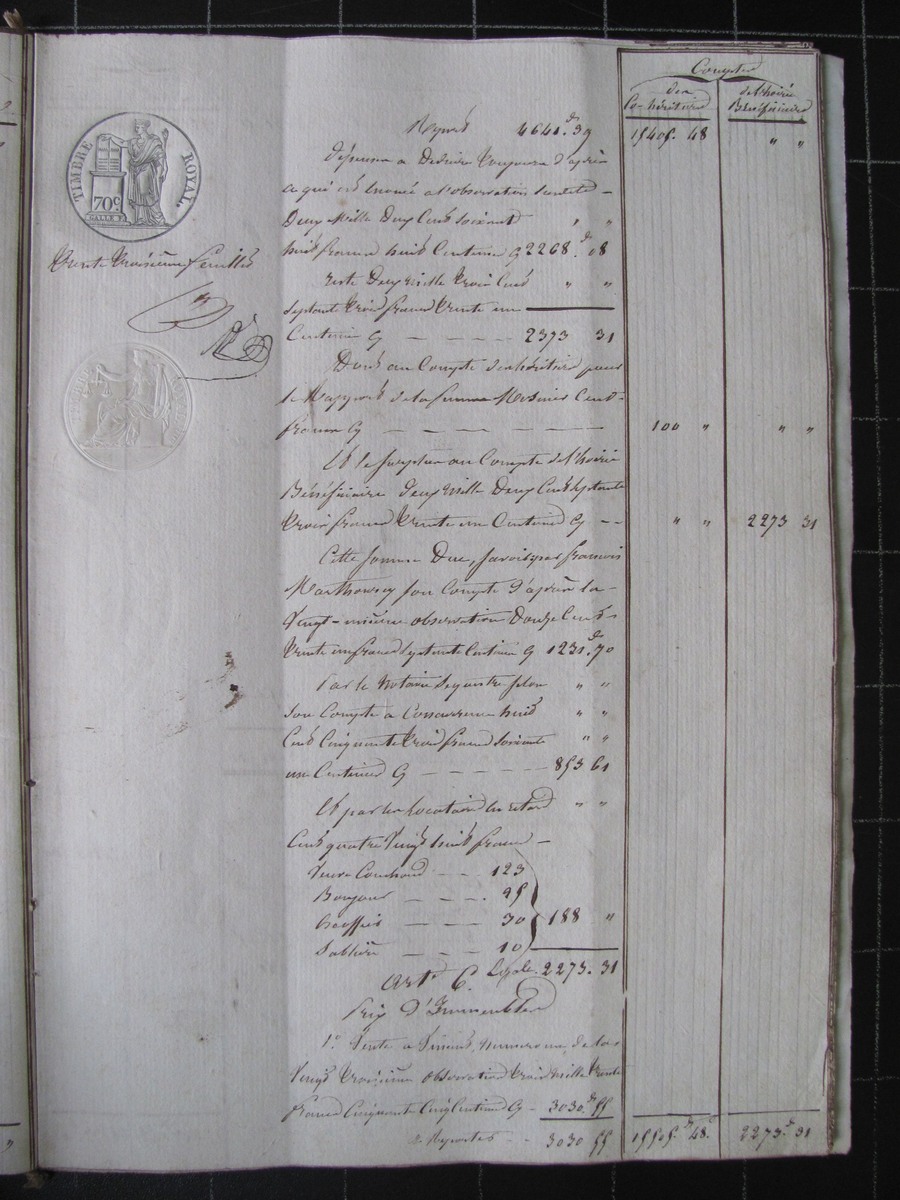 Comptes
des Co-héritiers
de l'hoirie Bénéficiaire
TIMBRE ROYAL
70c
trente troisième feuillet
Report 4641.f 39 15405. 48 " "
dépenses a Déduire toujours d'après
ce qui est énoncé a l'observation
Deux Mille Deux Cent soixante " "
huit francs huit Centimes Cy 2268.f 08
reste Deux mille trois Cent " "
septante trois francs trente un
Centimes Cy 2373 31
Dont au Compte des héritiers pour
le Rapport de la femme Mesmer Cent
francs Cy 100 " " "
Et le surplus au Compte de l'hoirie
Bénéficiaire deux mille Deux Cent septante
trois francs trente un Centimes Cy " " 2273 31
Cette somme Due, savoir par francois
son Compte d'après la
Vingt-unième observation Douze Cent
trente un francs septante Centimes Cy 1231.f 70
Par le Notaire sequestre selon " "
son Compte a Concurrence huit " "
Cent Cinquante trois francs soixante " "
un Centimes Cy 853 61
Et par les locataires en retard " "
Cent quatre Vingt huit francs
Veuve Couchoud 123
Bonjour 25
30 188 "
Sablière 10
Egale. 2273. 31
Art. 6.
Prix d'Immeubles
1° Vente a numero un, de la
Vingt troisième observation trois mille trente
francs Cinquante Cinq Centimes Cy 3030.f 55
a Reporter 3030 55 15505.f 48c 2273.f 31